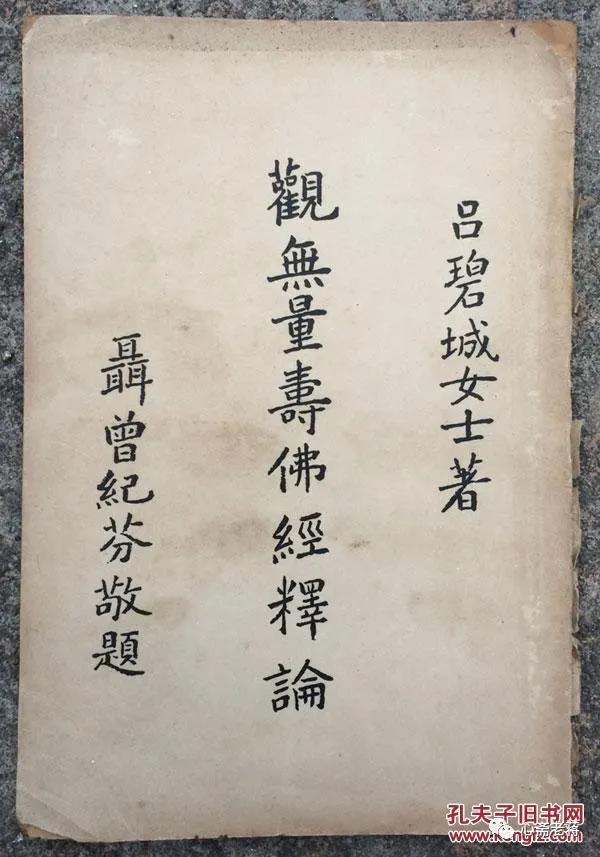 呂碧城女士著
觀無量壽佛經釋論
聶曾紀芬敬題
孔夫子旧书网